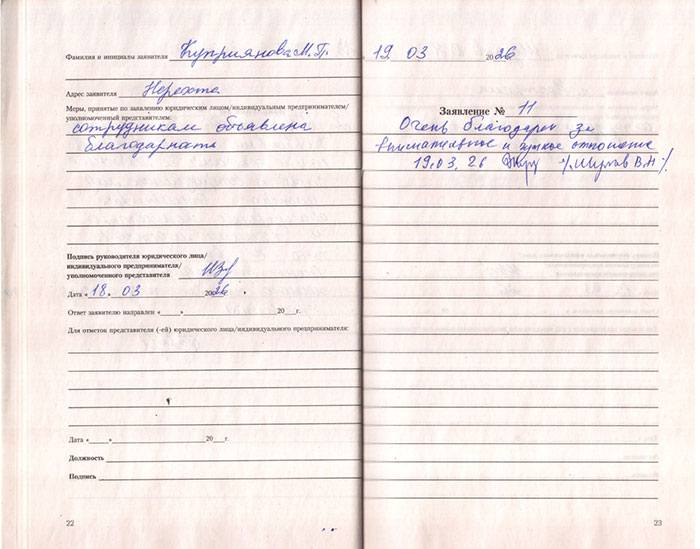 Фамилия и инициалы заявителя Куприянова М.П.
Адрес заявителя Нерехта
Меры, принятые по заявлению юридическим лицом/индивидуальным предпринимателем/
уполномоченный представителем:
сотрудникам объявлена
благодарность
Подпись руководителя юридического лица/
индивидуального предпринимателя/
уполномоченного представителя
Дата «18. 03 2026
Ответ заявителю направлен «____»____________20___г.
Для отметок представителя (-ей) юридического лица/индивидуального предпринимателя:
Дата «____»____________20___г.
Должность
Подпись
22
19. 03 2026
Заявление № 11
Очень благодарен за
внимательное и чуткое отношение
19.03.26
23